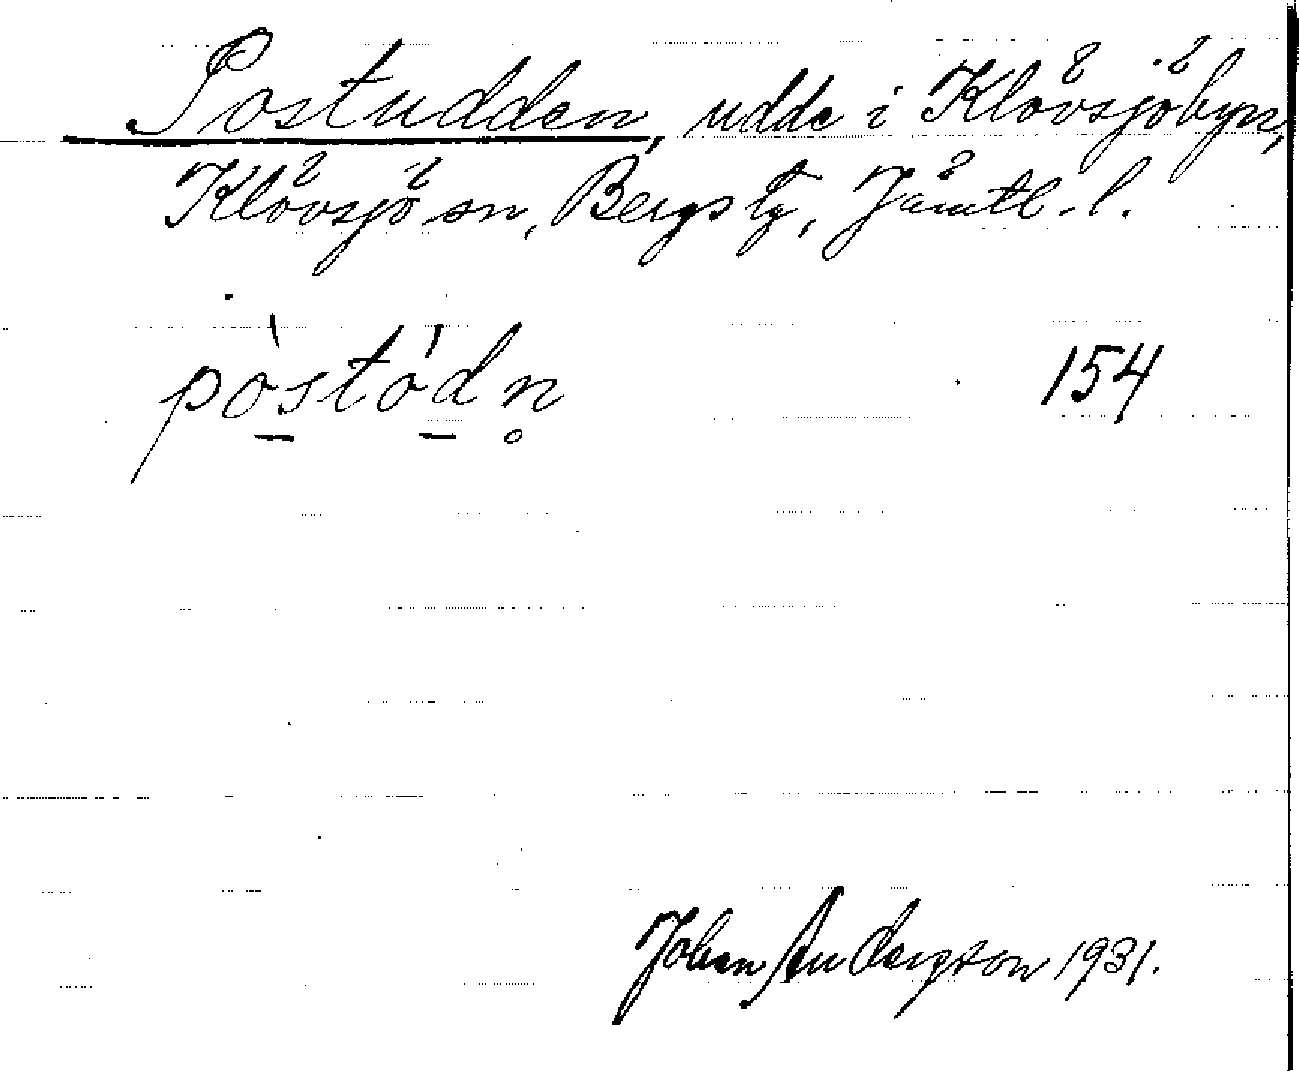 Postudden, udde i Klövsjöbyn,
Klövsjö sn, Bergs tg, Jämtl. l.
pòstódn̥ 154
Johan Andersson 1931.